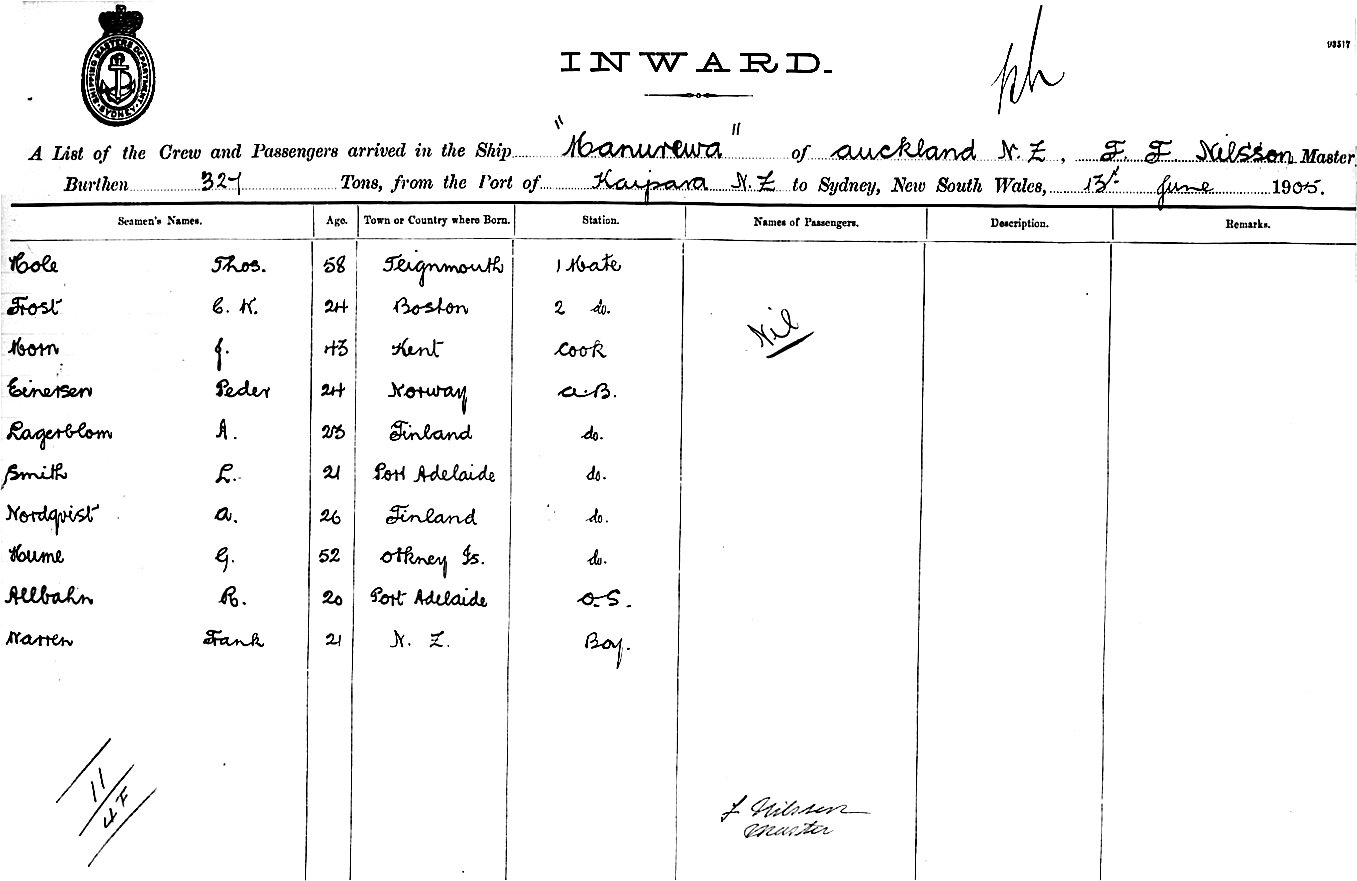 SHIPPING MASTERS DEPARTMENT SYDNEY
INWARD.
A List of the Crew and Passengers arrived in the Ship "Manurewa" of Auckland N.Z, F. F Nilsson Master
Burthen 327 Tons, from the Port of Kaipara N.Z to Sydney, New South Wales, 13th June 1905.
Seamen's Names. Age. Town or Country where Born. Station. Names of Passengers. Description. Remarks.
Hole Thos. 58 Teignmouth 1 Mate
Frost C. K. 24 Boston 2 do.
Horn J. 43 Kent Cook
Nil
Einersen Peder 24 Norway A.B.
Lagerblom A. 23 Finland do.
Smith L. 21 Port Adelaide do.
Nordqvist A. 26 Finland do.
Hume G. 52 Orkney Is. do.
Allbahn R. 20 Port Adelaide O.S.
Warren Frank 21 N. Z. Boy.
11
4F
F Nilsson
Master